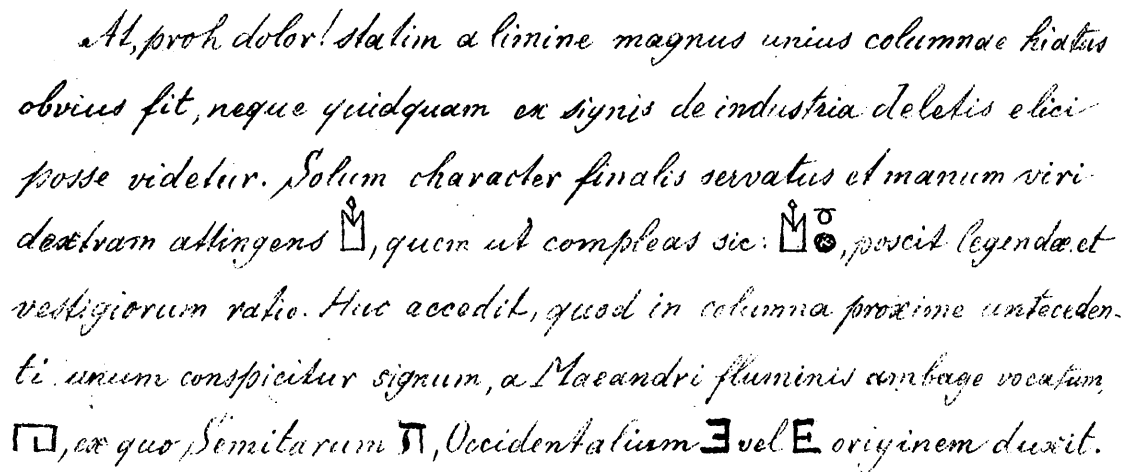 At, proh dolor! statim a limine magnus unius columnae hiatus
obvius fit, neque quidquam ex signis de industria deletis elici
posse videtur. Solum character finalis servatus et manum viri
dextram attingens, quem ut compleas sic:, poscit legendae et
vestigiorum ratio. Huc accedit, quod in columna proxime anteceden-
ti unum conspicitur signum, a Maeandri fluminis ambage vocatum,
, ex quo Semitarum, Occidentalium Ǝ vel E originem duxit.